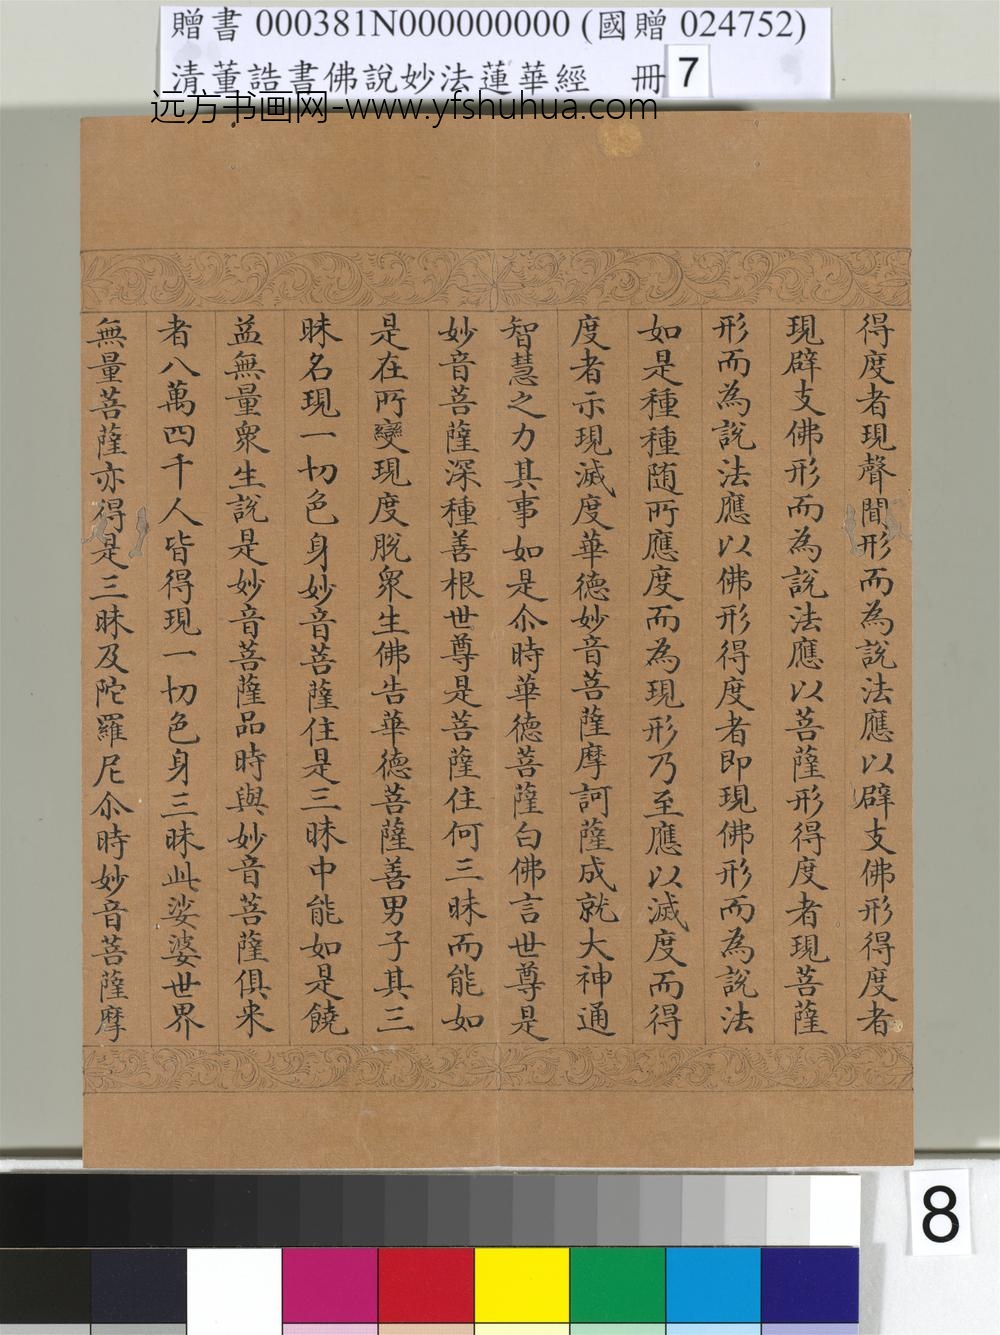 贈書 000381N000000000 (國贈 024752)
清董誥書佛說妙法蓮華經 冊 7
远方书画网-www.yfshuhua.com
得度者現聲聞形而為說法應以辟支佛形得度者
現辟支佛形而為說法應以菩薩形得度者現菩薩
形而為說法應以佛形得度者即現佛形而為說法
如是種種随所應度而為現形乃至應以滅度而得
度者示現滅度華德妙音菩薩摩訶薩成就大神通
智慧之力其事如是尒時華德菩薩白佛言世尊是
妙音菩薩深種善根世尊是菩薩住何三昧而能如
是在所變現度脫衆生佛告華德菩薩善男子其三
昧名現一切色身妙音菩薩住是三昧中能如是饒
益無量衆生說是妙音菩薩品時與妙音菩薩俱来
者八萬四千人皆得現一切色身三昧此娑婆世界
無量菩薩亦得是三昧及陀羅尼尒時妙音菩薩摩
8